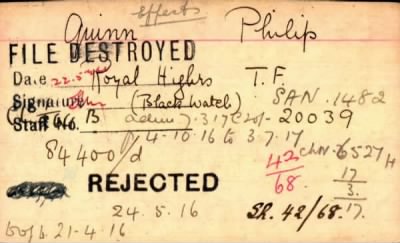 Effects
Quinn Philip
FILE DESTROYED
Date 22.5. Royal Highrs T.F.
Signature (Black Watch) SAN.1482
Staff No. B 7.3.17 20039
4-10.16 to 3.7.17
84400/d 42/68 6527H
REJECTED 17/3.
24.5.16 SR. 42/68. 17.
21-4.16